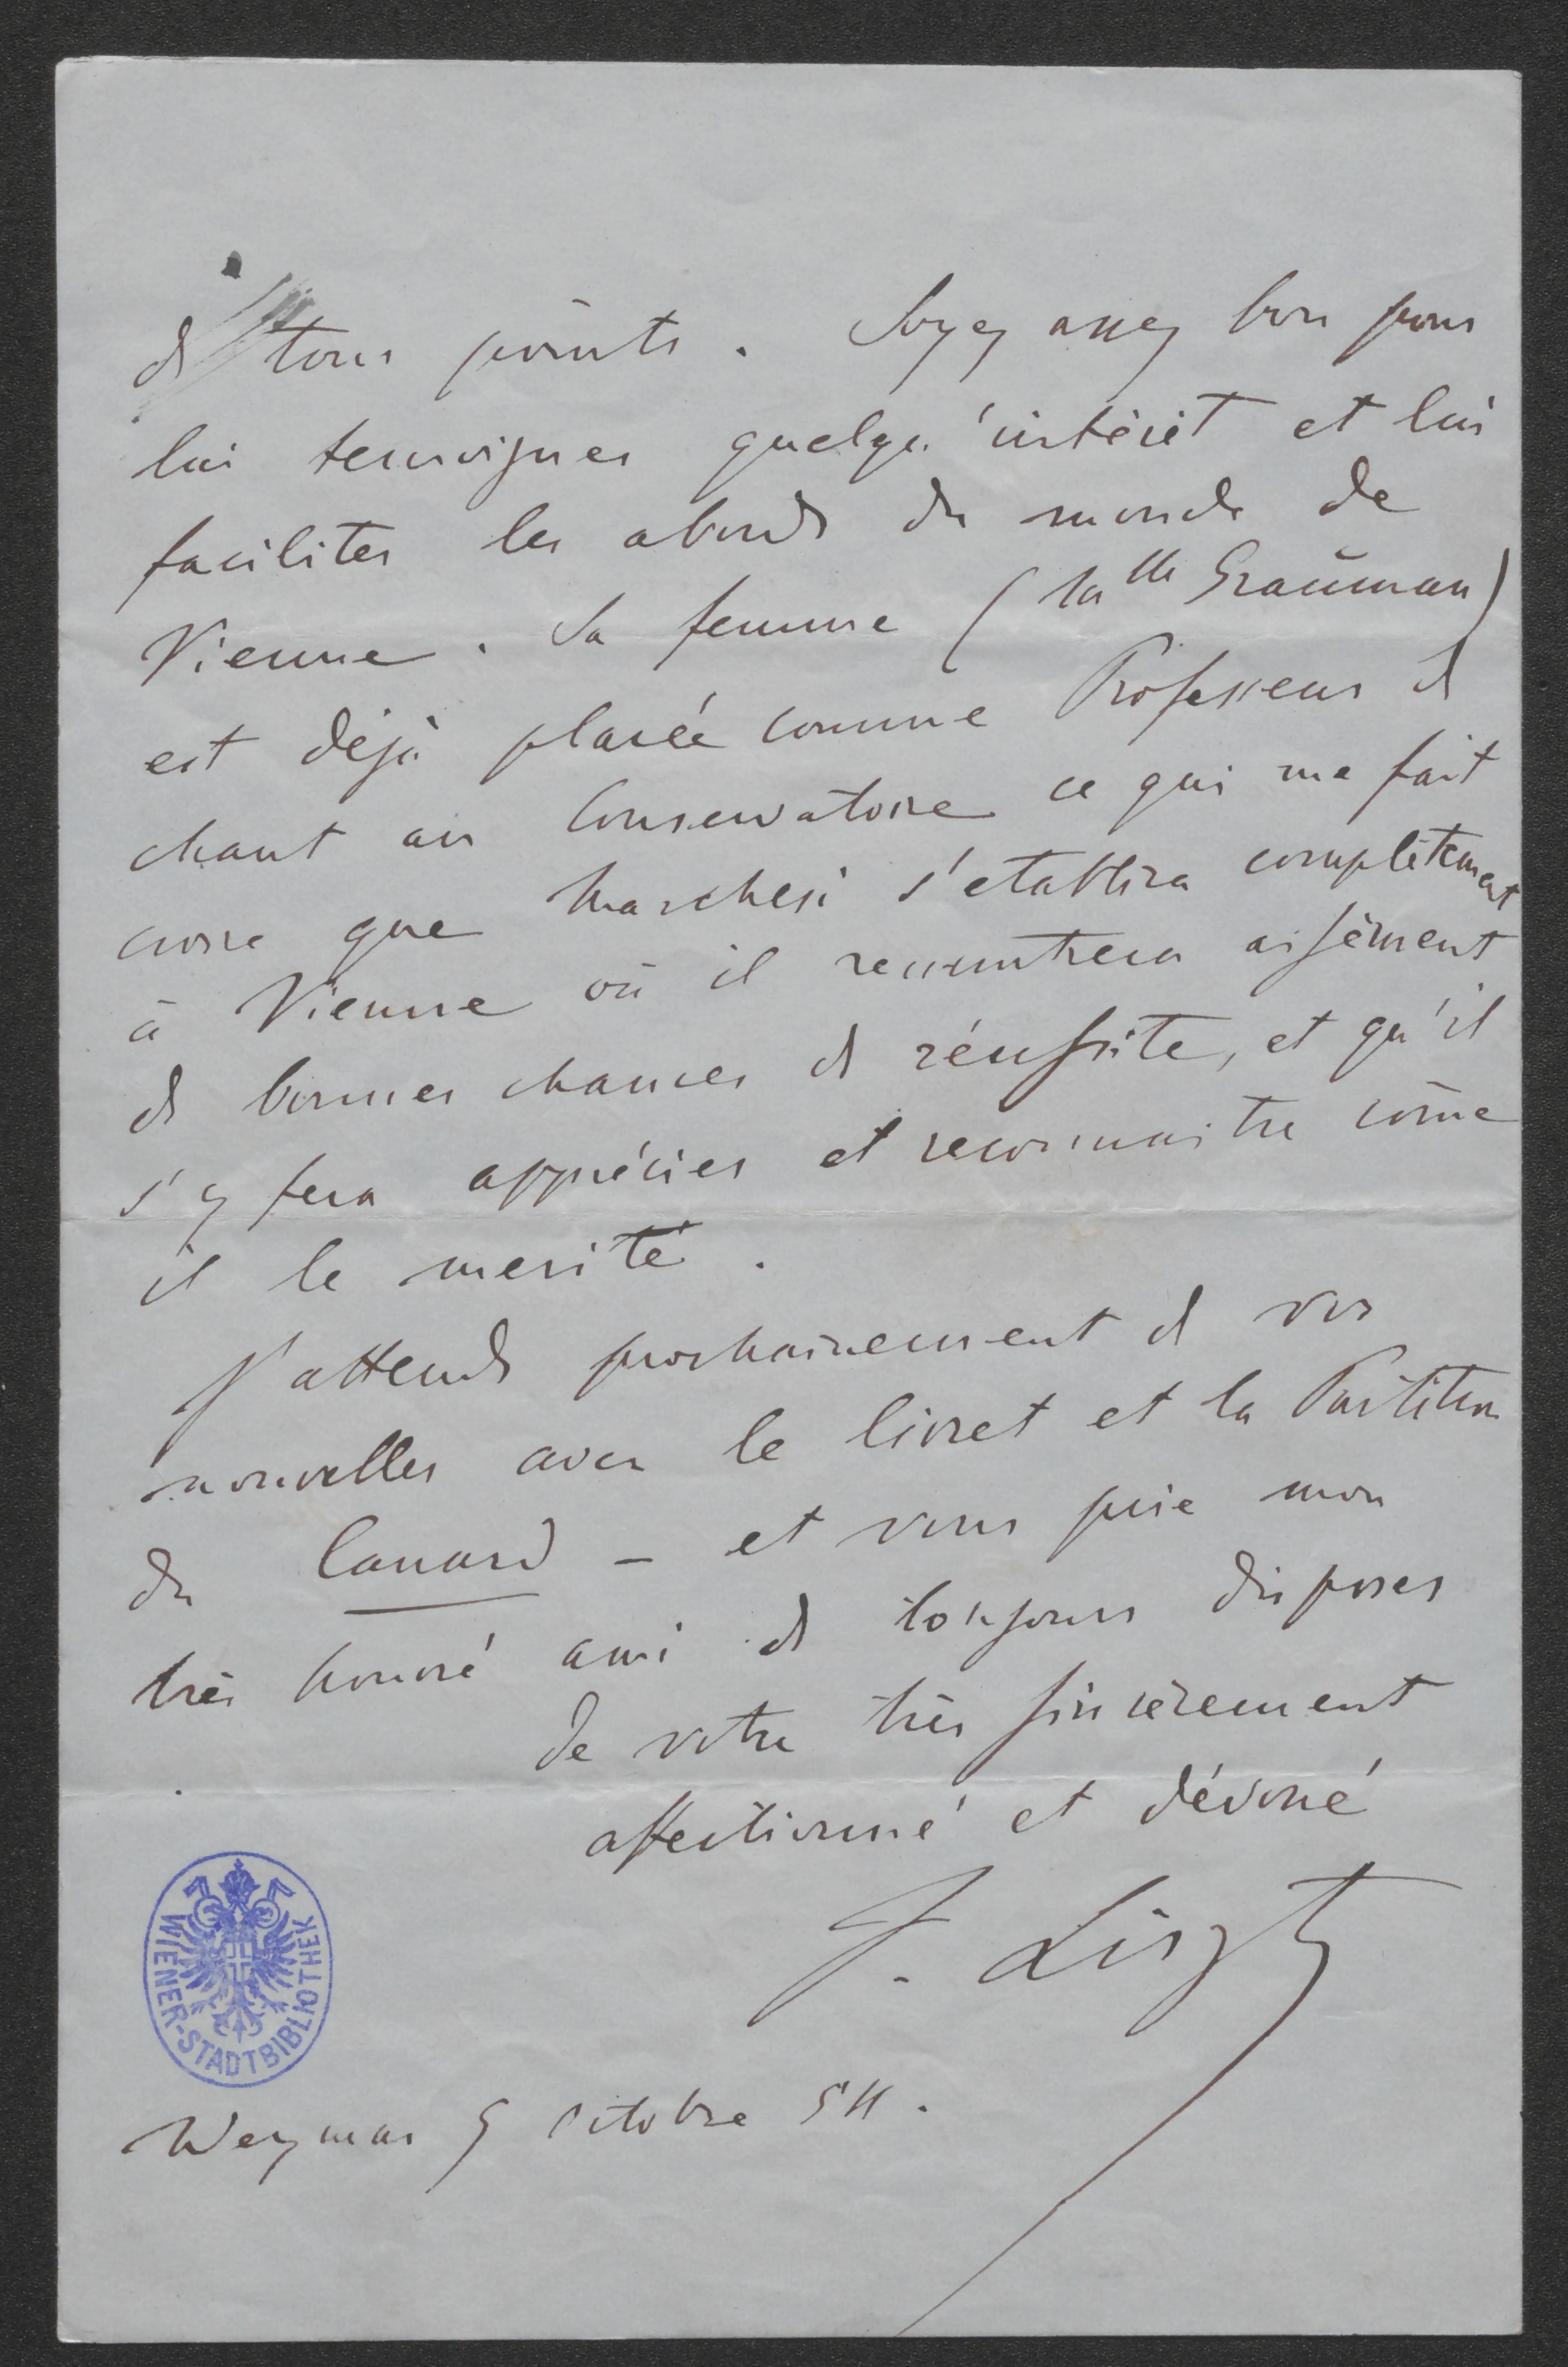 de tous points. Soyez assez bon pour
lui temoigner quelqu'intérêt et lui
faciliter les abords du monde de
Vienne. Sa femme (la Grauman)
est déjà placée comme Professeur de
chant au Conservatoire ce qui me fait
croire que Marchesi s'etablira complètement
à Vienne où il rencontrera aisément
de bonnes chances de réussite, et qu'il
s'y fera apprécier et reconnaitre come
il le merite.
J'attends prochainement de vos
nouvelles avec le livret et la Partition
du Canard – et vous prie mon
très honoré ami de toujours disposer
de votre très sincèrement
affectionné et dévoué
F. Liszt
WIENER-STADTBIBLIOTHEK
Weymar 5 Octobre 54.